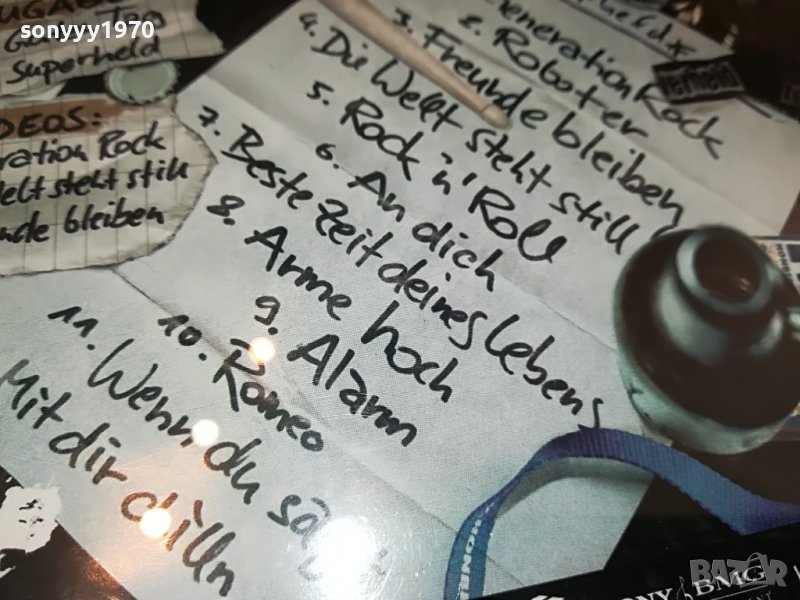 sonyyy1970
Superheld
DEOS:
ration Rock
elt steht still
nde bleiben
enerationRock
2. Roboter
3. Freunde bleiben
4. Die Welt steht still
5. Rock 'n' Roll
6. An dich
7. Beste Zeit deines Lebens
8. Arme hoch
9. Alarm
10. Romeo
11. Wenn du
Mit dir chilln
SONY BMG
BAZAR